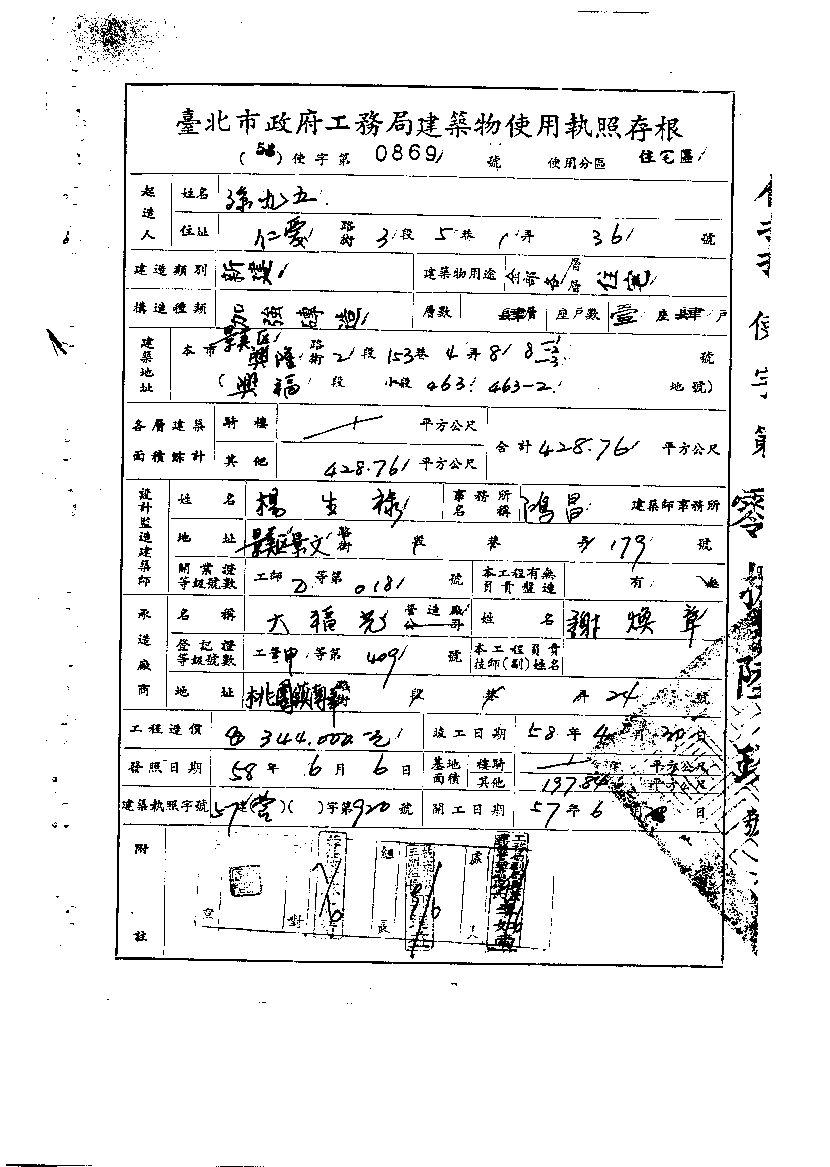 臺北市政府工務局建築物使用執照存根
(58)使字第 0869 號 使用分區 住宅區
起造人 姓名 孫九五
住址 仁愛路街 3段 5巷 1弄 36 號
建造類別 新建 建築物用途 層層 住宅
構造種類 加強磚造 層數 肆層 座戶數 壹座肆戶
建築地址 本市 景美區 興隆路街 2段 153巷 4弄 8 8 號
(興福段 小段 463 463-2 地號)
各層建築面積綜計 騎樓 平方公尺 合計 428.76 平方公尺
其他 428.76 平方公尺
設計監造建築師 姓名 楊生祿 事務所名稱 鴻昌 建築師事務所
地址 景美區景文路街 段 巷 弄 179 號
開業證等級號數 工師 等第 0181 號 本工程有無負責監造 有 無
承造廠商 名稱 大福光 營造廠公司 姓名 謝煥章
登記證等級號數 工營甲等第 409 號 本工程負責技師(副)姓名
地址 桃園鎮 路街 段 巷 弄 24 號
工程造價 344.000元 竣工日期 58年 4月 30日
發照日期 58年 6月 6日 基地面積 樓騎 平方公尺
其他 197.84 平方公尺
建築執照字號 57建(營)( )字第920號 開工日期 57年 6月 日
附註
組長
處
使字第零捌陸